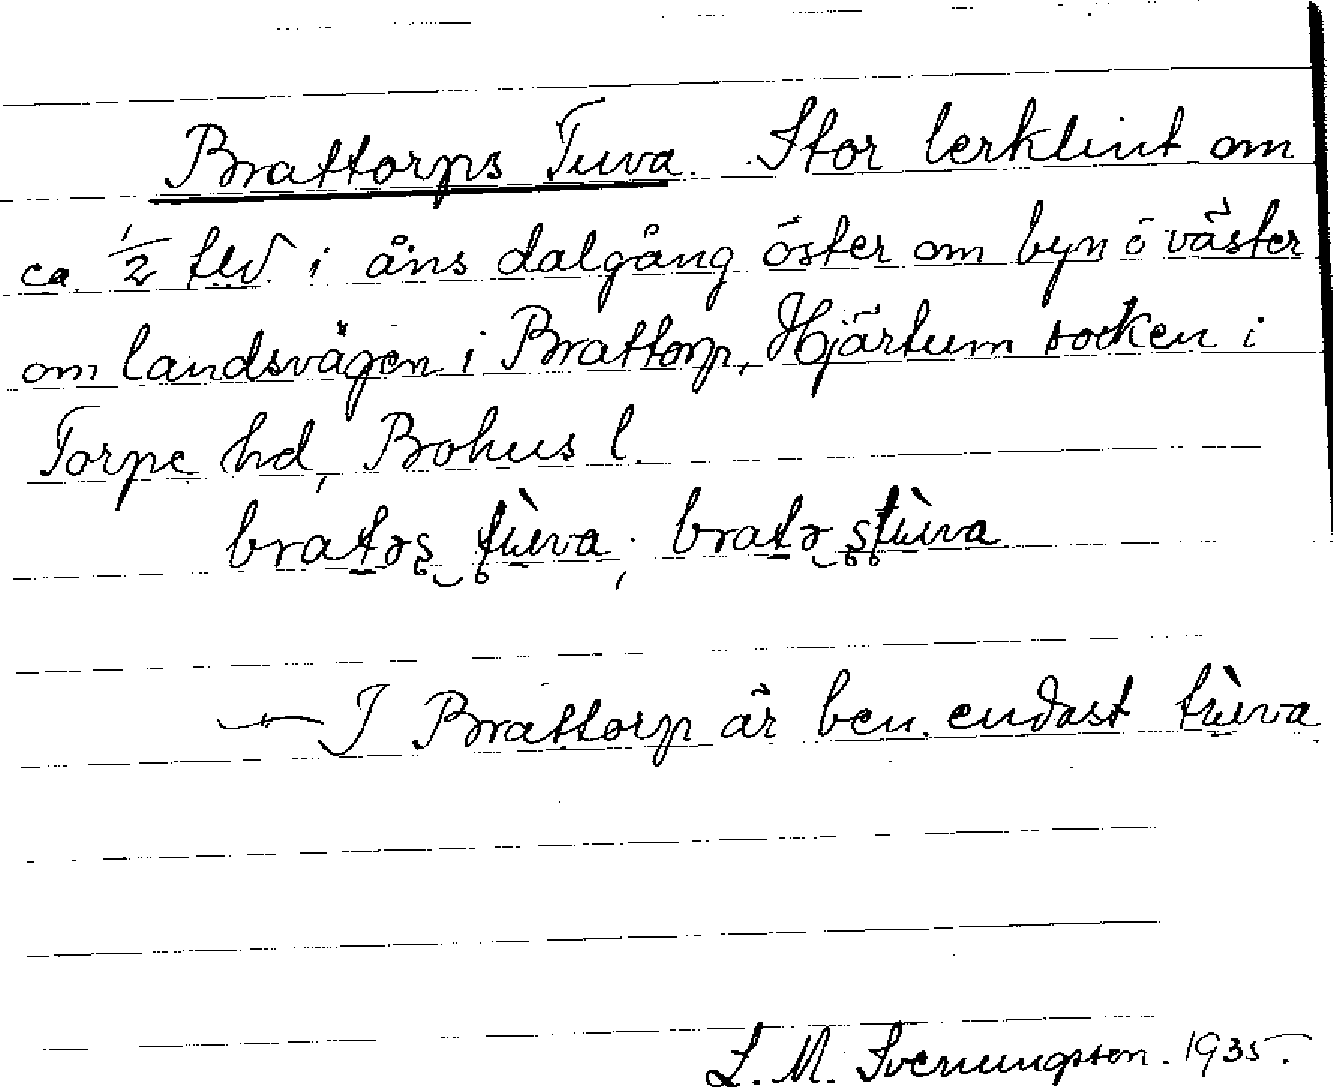 Brattorps Tuva. Stor lerklint om
ca 1/2 tld i åns dalgång öster om byn ö väster
om landsvägen i Brattorp, Hjärtum socken i
Torpe hd, Bohus l.
bratəş tùva; bratə ştùva
— I Brattorp är ben. endast tùva
L. M. Svenungsson. 1935.